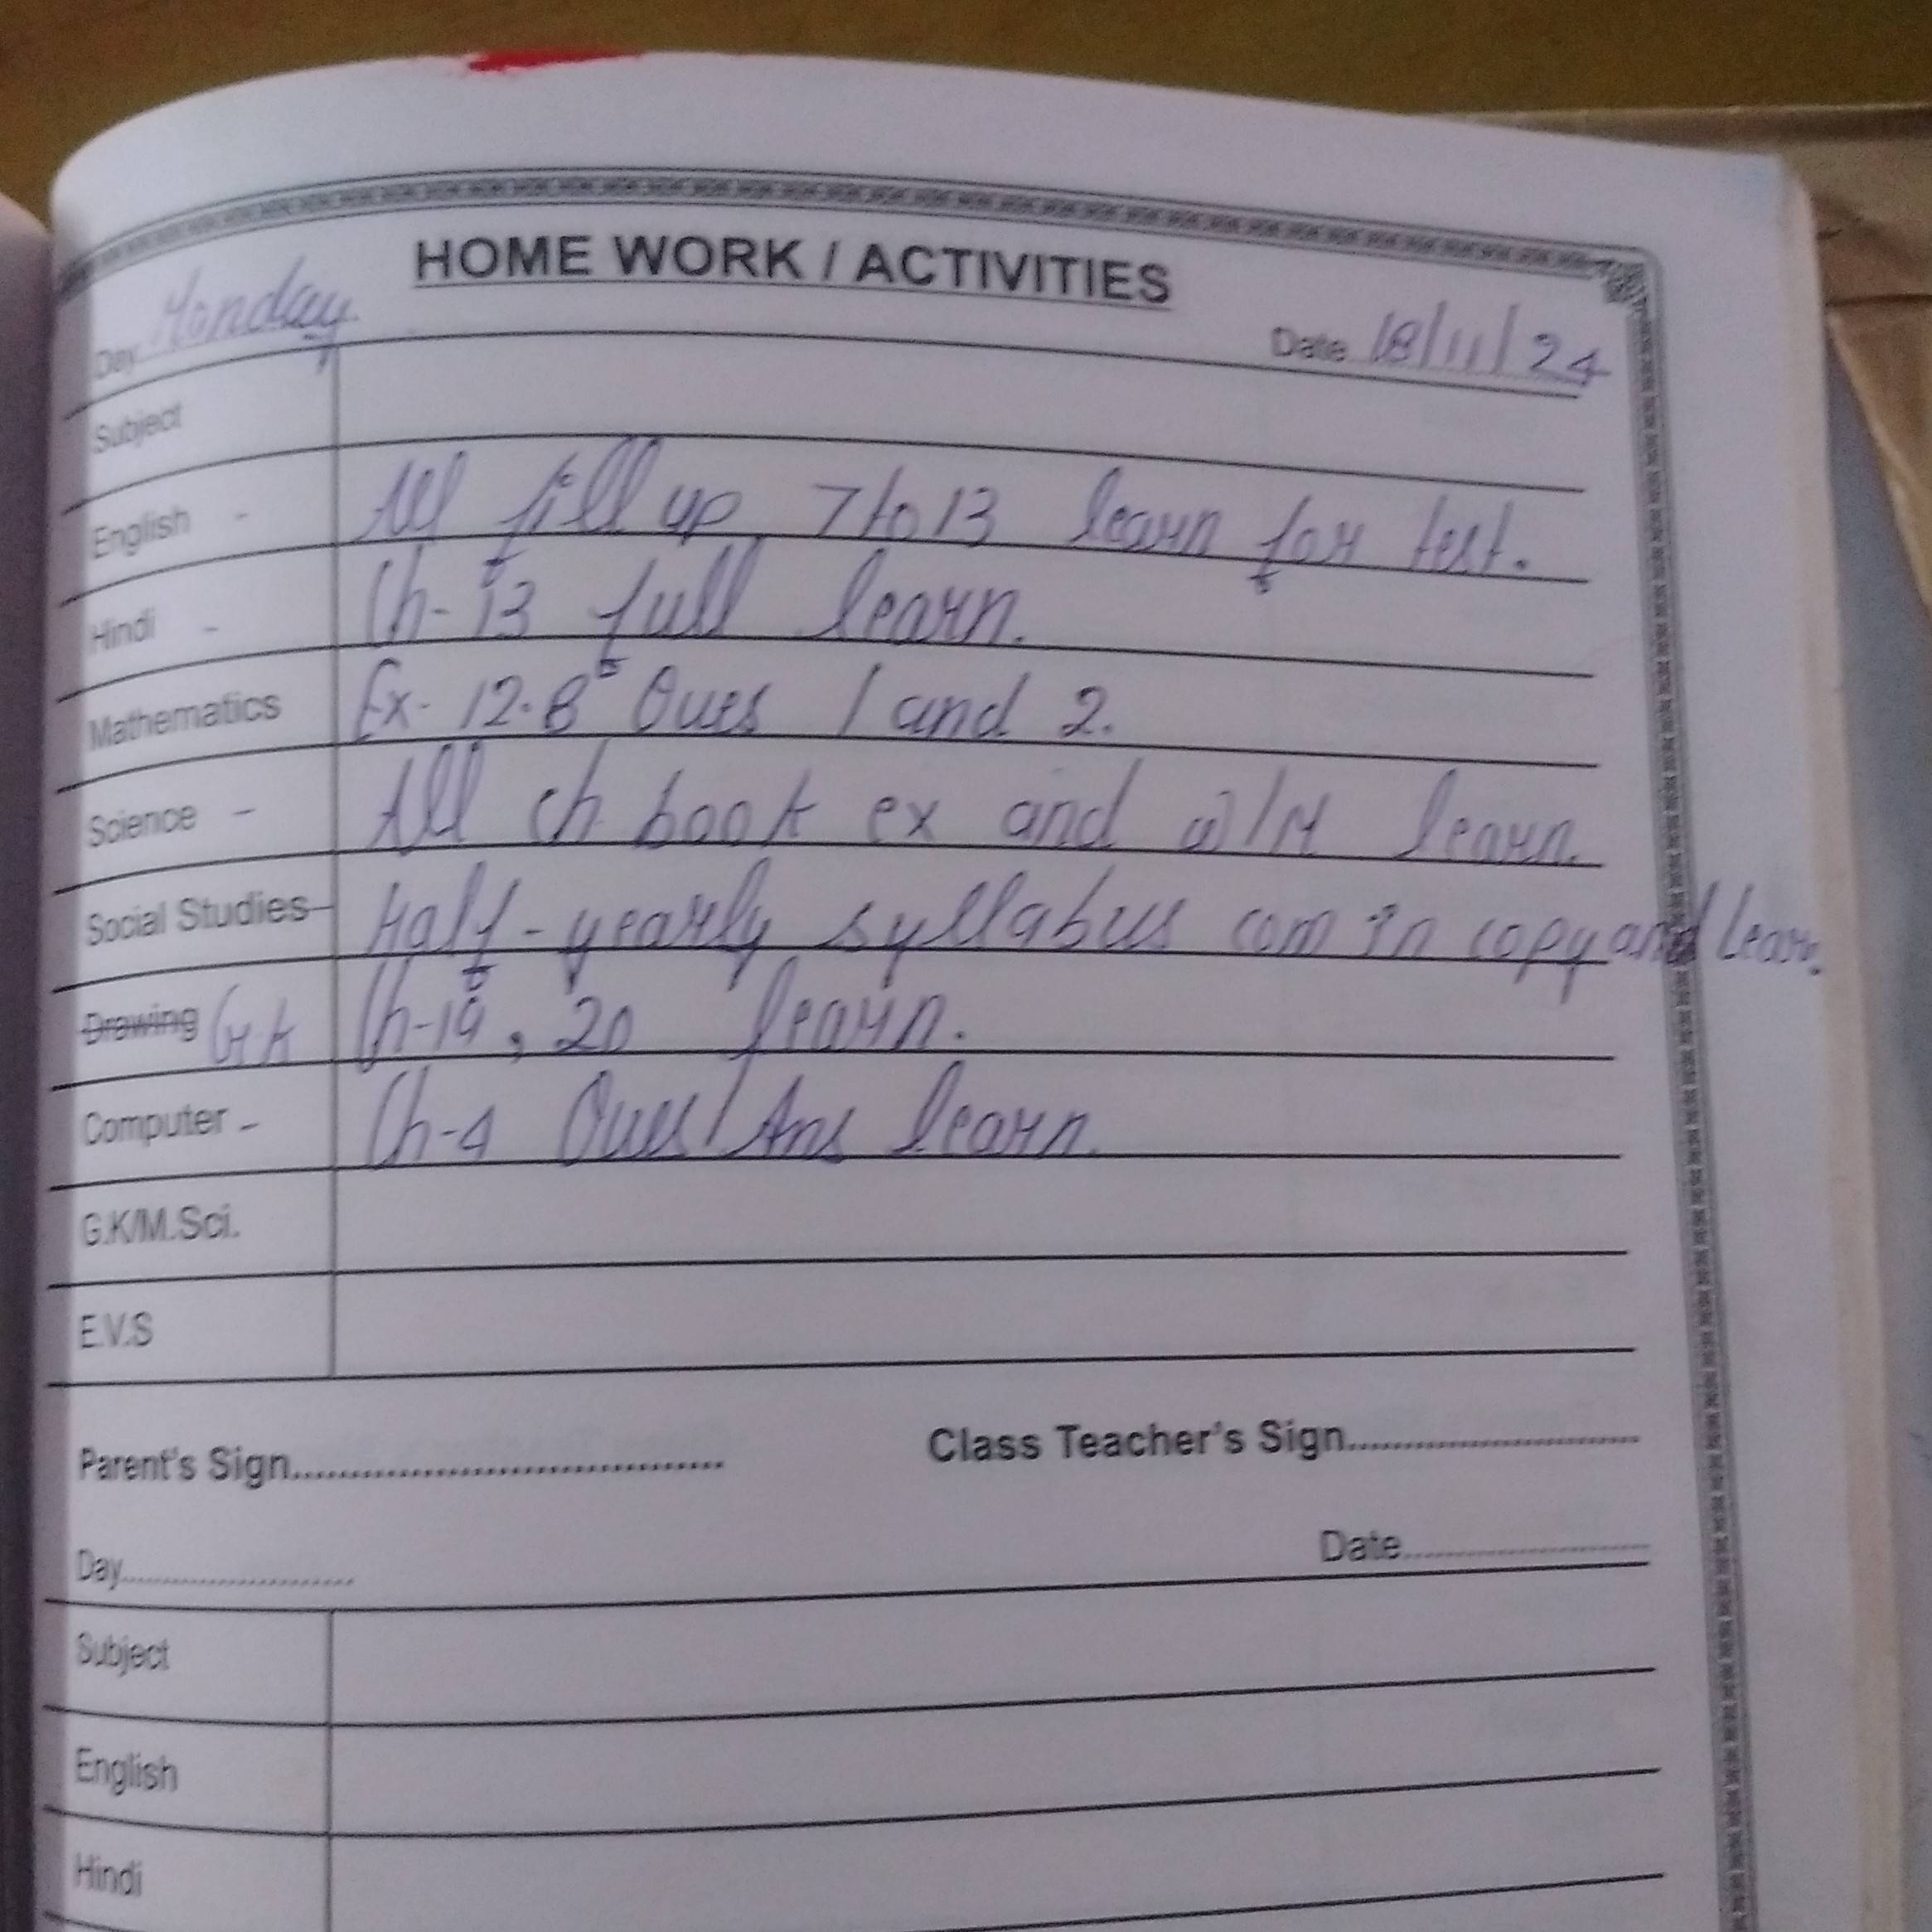 HOME WORK / ACTIVITIES
Day Monday Date 18/11/24
Subject
English - All fill up 7 to 13 learn for test.
Hindi - Ch-13 full learn.
Mathematics Ex-12.8 Ques 1 and 2.
Science - All ch book ex and learn.
Social Studies- Half-yearly syllabus com in copy and learn.
Drawing G.k Ch-19, 20 learn.
Computer - Ch-4 Ques/Ans learn.
G.K/M.Sci.
E.V.S
Parent's Sign................................ Class Teacher's Sign................................
Day........................ Date........................
Subject
English
Hindi